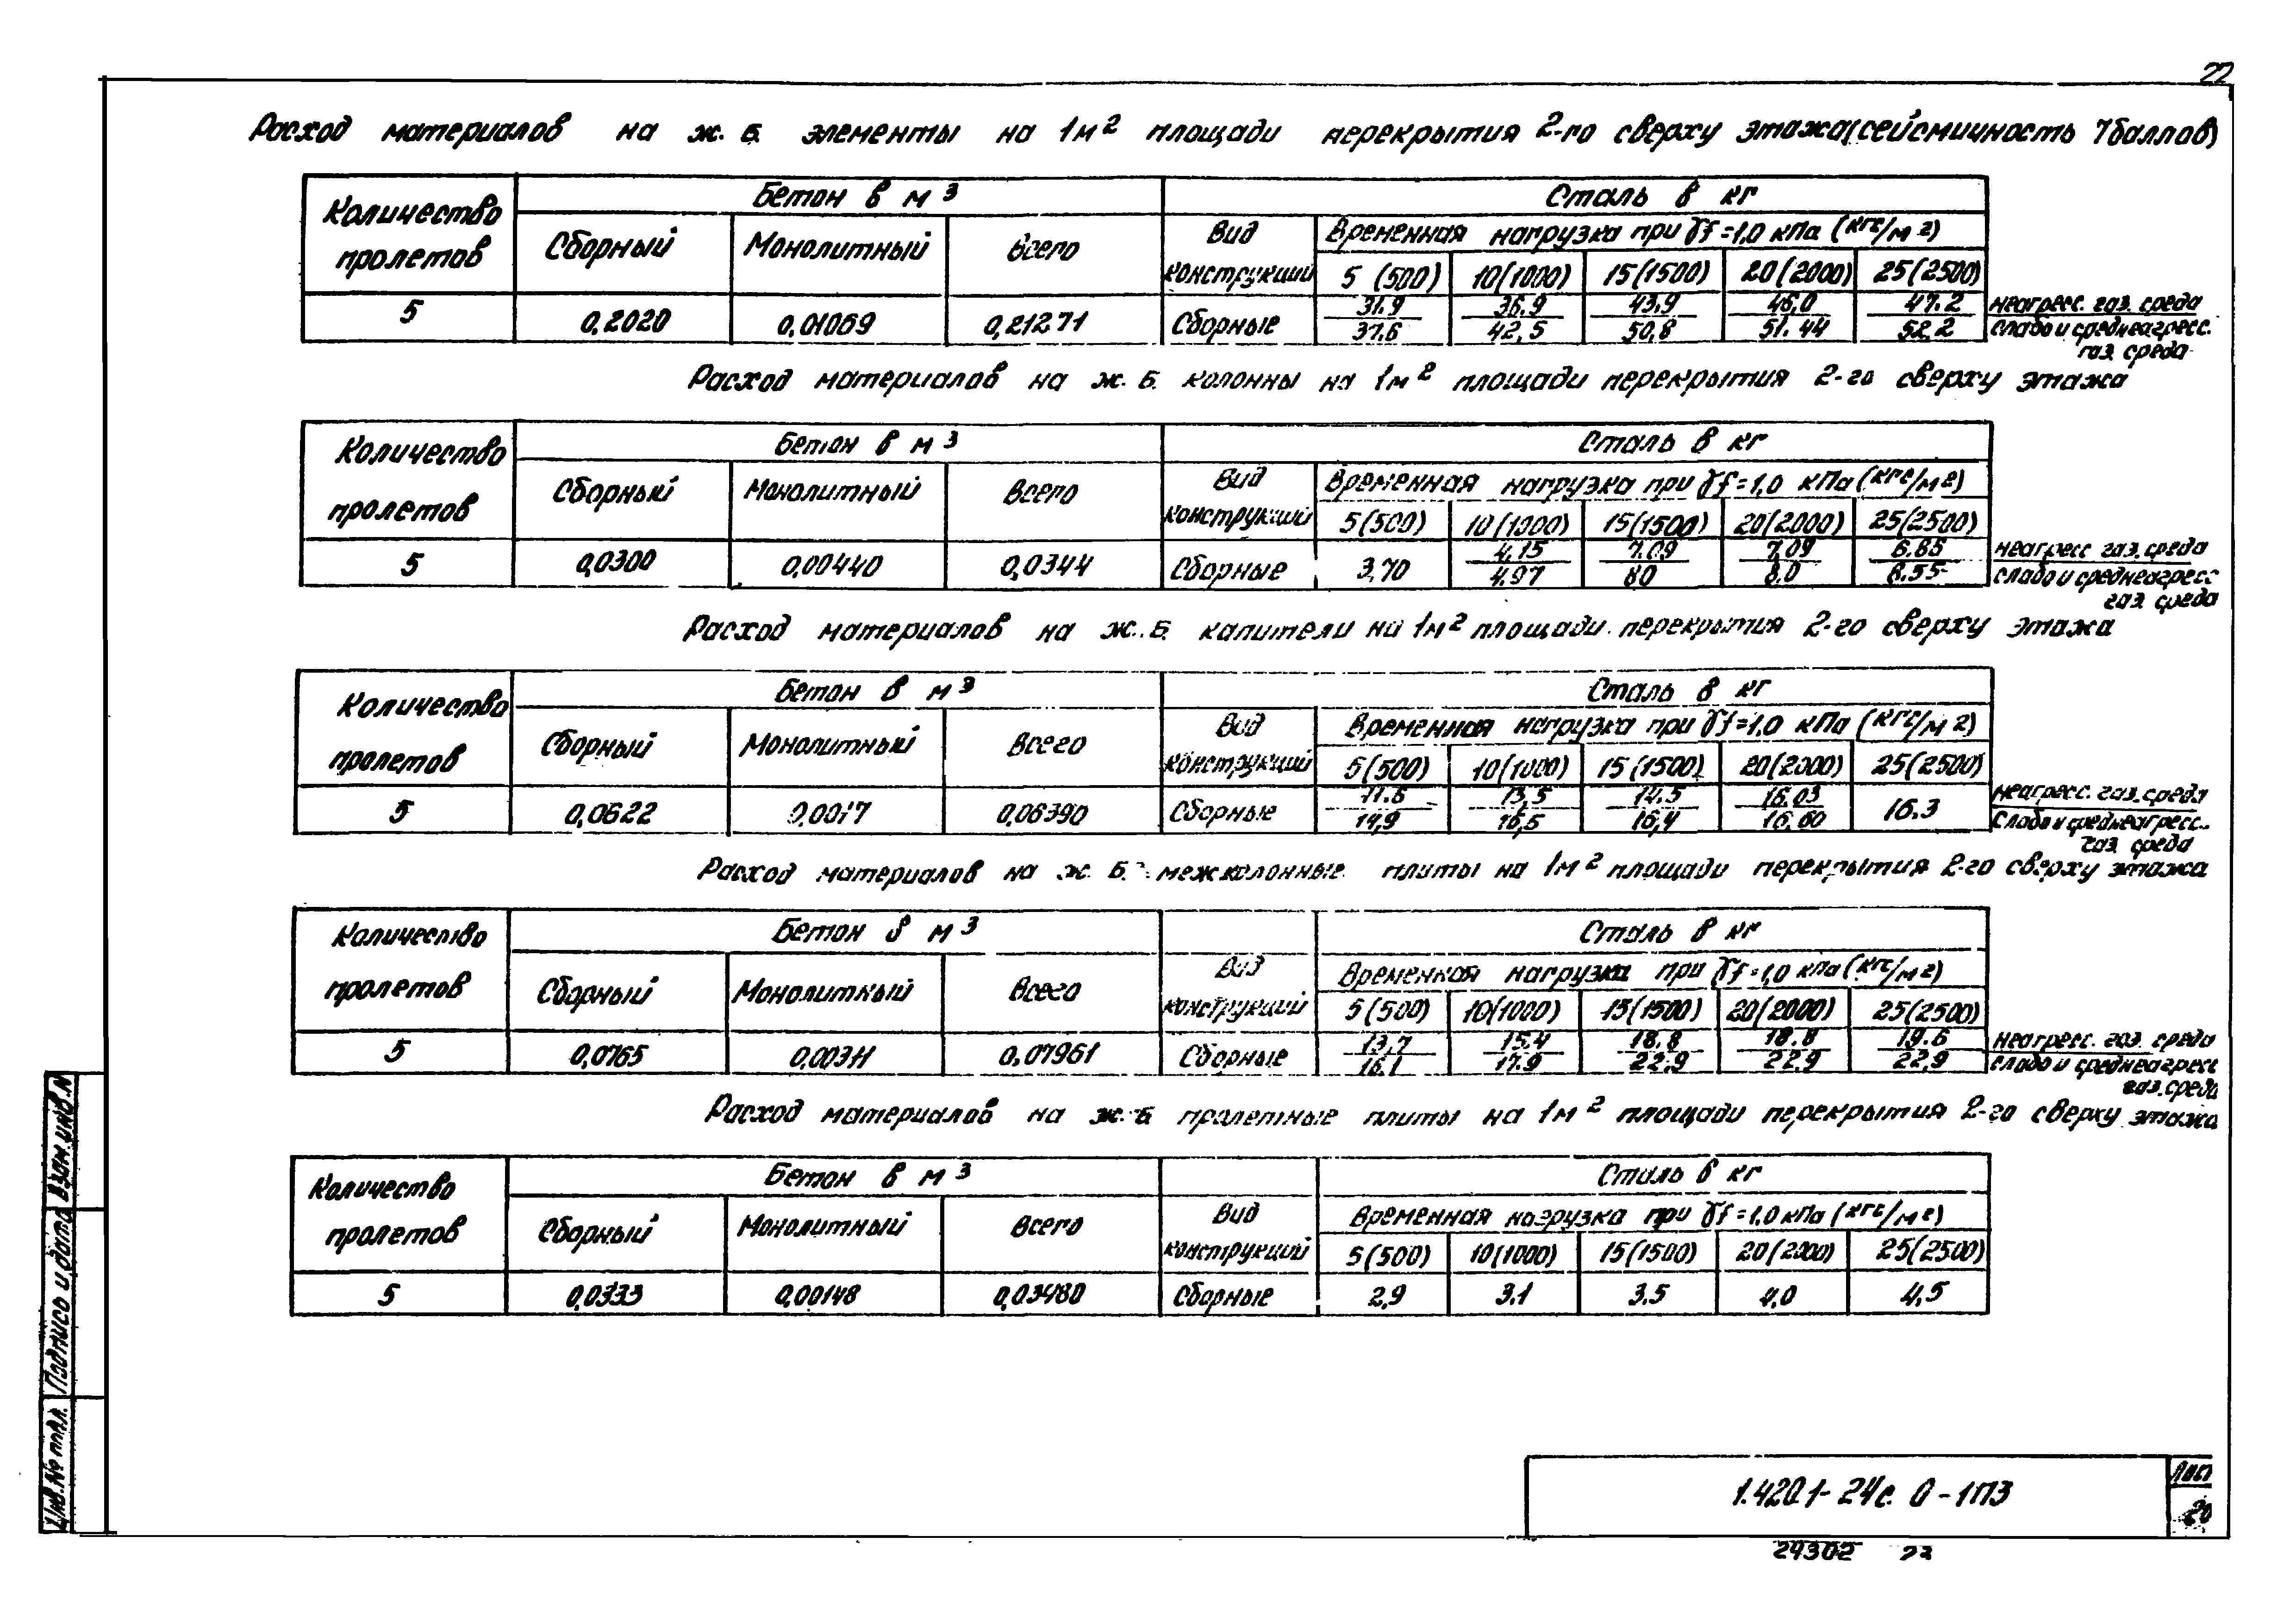 22
Расход материалов на ж.б. элементы на 1м² площади перекрытия 2-го сверху этажа (сейсмичность 7баллов)
Количество пролетов Бетон в м³ Сталь в кг
Сборный Монолитный Всего Вид конструкций Временная нагрузка при γf=1,0 кПа (кгс/м²)
5 (500) 10(1000) 15(1500) 20(2000) 25(2500)
5 0,2020 0,01069 0,21271 Сборные 31.9 36.9 43.9 46,0 47.2 неагресс. газ. среда
37.6 42,5 50,8 51.44 52.2 слабо и среднеагресс.
газ. среда
Расход материалов на ж.б. колонны на 1м² площади перекрытия 2-го сверху этажа
Количество пролетов Бетон в м³ Сталь в кг
Сборный Монолитный Всего Вид конструкций Временная нагрузка при γf=1,0 кПа (кгс/м²)
5(500) 10(1000) 15(1500) 20(2000) 25(2500)
5 0,0300 0,00440 0,0344 Сборные 3,70 4,15 7.09 7,09 6.85 неагресс газ. среда
4.97 8.0 8.0 8.55 слабо и среднеагресс
газ. среда
Расход материалов на ж.б. капители на 1м² площади перекрытия 2-го сверху этажа
Количество пролетов Бетон в м³ Сталь в кг
Сборный Монолитный Всего Вид конструкций Временная нагрузка при γf=1,0 кПа (кгс/м²)
5(500) 10(1000) 15(1500) 20(2000) 25(2500)
5 0,0622 0,0017 0,06390 Сборные 11.6 13,5 14.5 16.03 16.3 неагресс. газ. среда
14,9 16,5 16,4 16.60 слабо и среднеагресс.
газ. среда
Расход материалов на ж.б. межколонные плиты на 1м² площади перекрытия 2-го сверху этажа
Количество пролетов Бетон в м³ Сталь в кг
Сборный Монолитный Всего Вид конструкций Временная нагрузка при γf=1,0 кПа (кгс/м²)
5(500) 10(1000) 15(1500) 20(2000) 25(2500)
5 0,0765 0,00311 0,07961 Сборные 13,7 15,4 18.8 18.8 19.6 неагресс. газ. среда
16.1 17.9 22,9 22,9 22,9 слабо и среднеагресс
газ. среда
Расход материалов на ж.б пролетные плиты на 1м² площади перекрытия 2-го сверху этажа
Количество пролетов Бетон в м³ Сталь в кг
Сборный Монолитный Всего Вид конструкций Временная нагрузка при γf=1,0 кПа (кгс/м²)
5(500) 10(1000) 15(1500) 20(2000) 25(2500)
5 0,0333 0,00148 0,03480 Сборные 2,9 3.1 3.5 4,0 4,5
Инв.№ подл. Подпись и дата Взам.инв.N
1.420.1-24с. 0-1ПЗ
Лист
20
24302 23